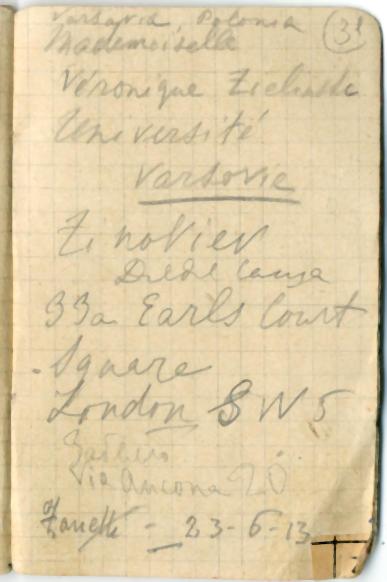 Varsavia, Polonia 31
Mademoiselle
Véronique Zielinski
Université
Varsovie
Zinoviev
33a Earls Court
Square
London SW5
Via Ancona 20
Zanetti - 23-6-13